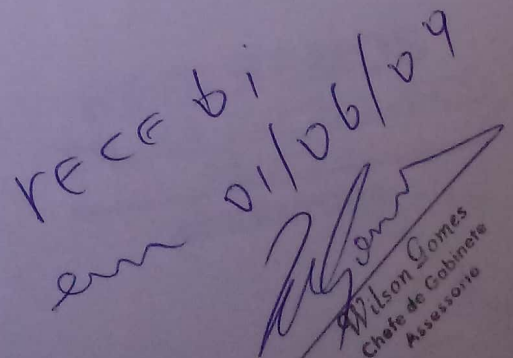 recebi
em 01/06/09
Wilson Gomes
Chefe de Gabinete
Assessoria